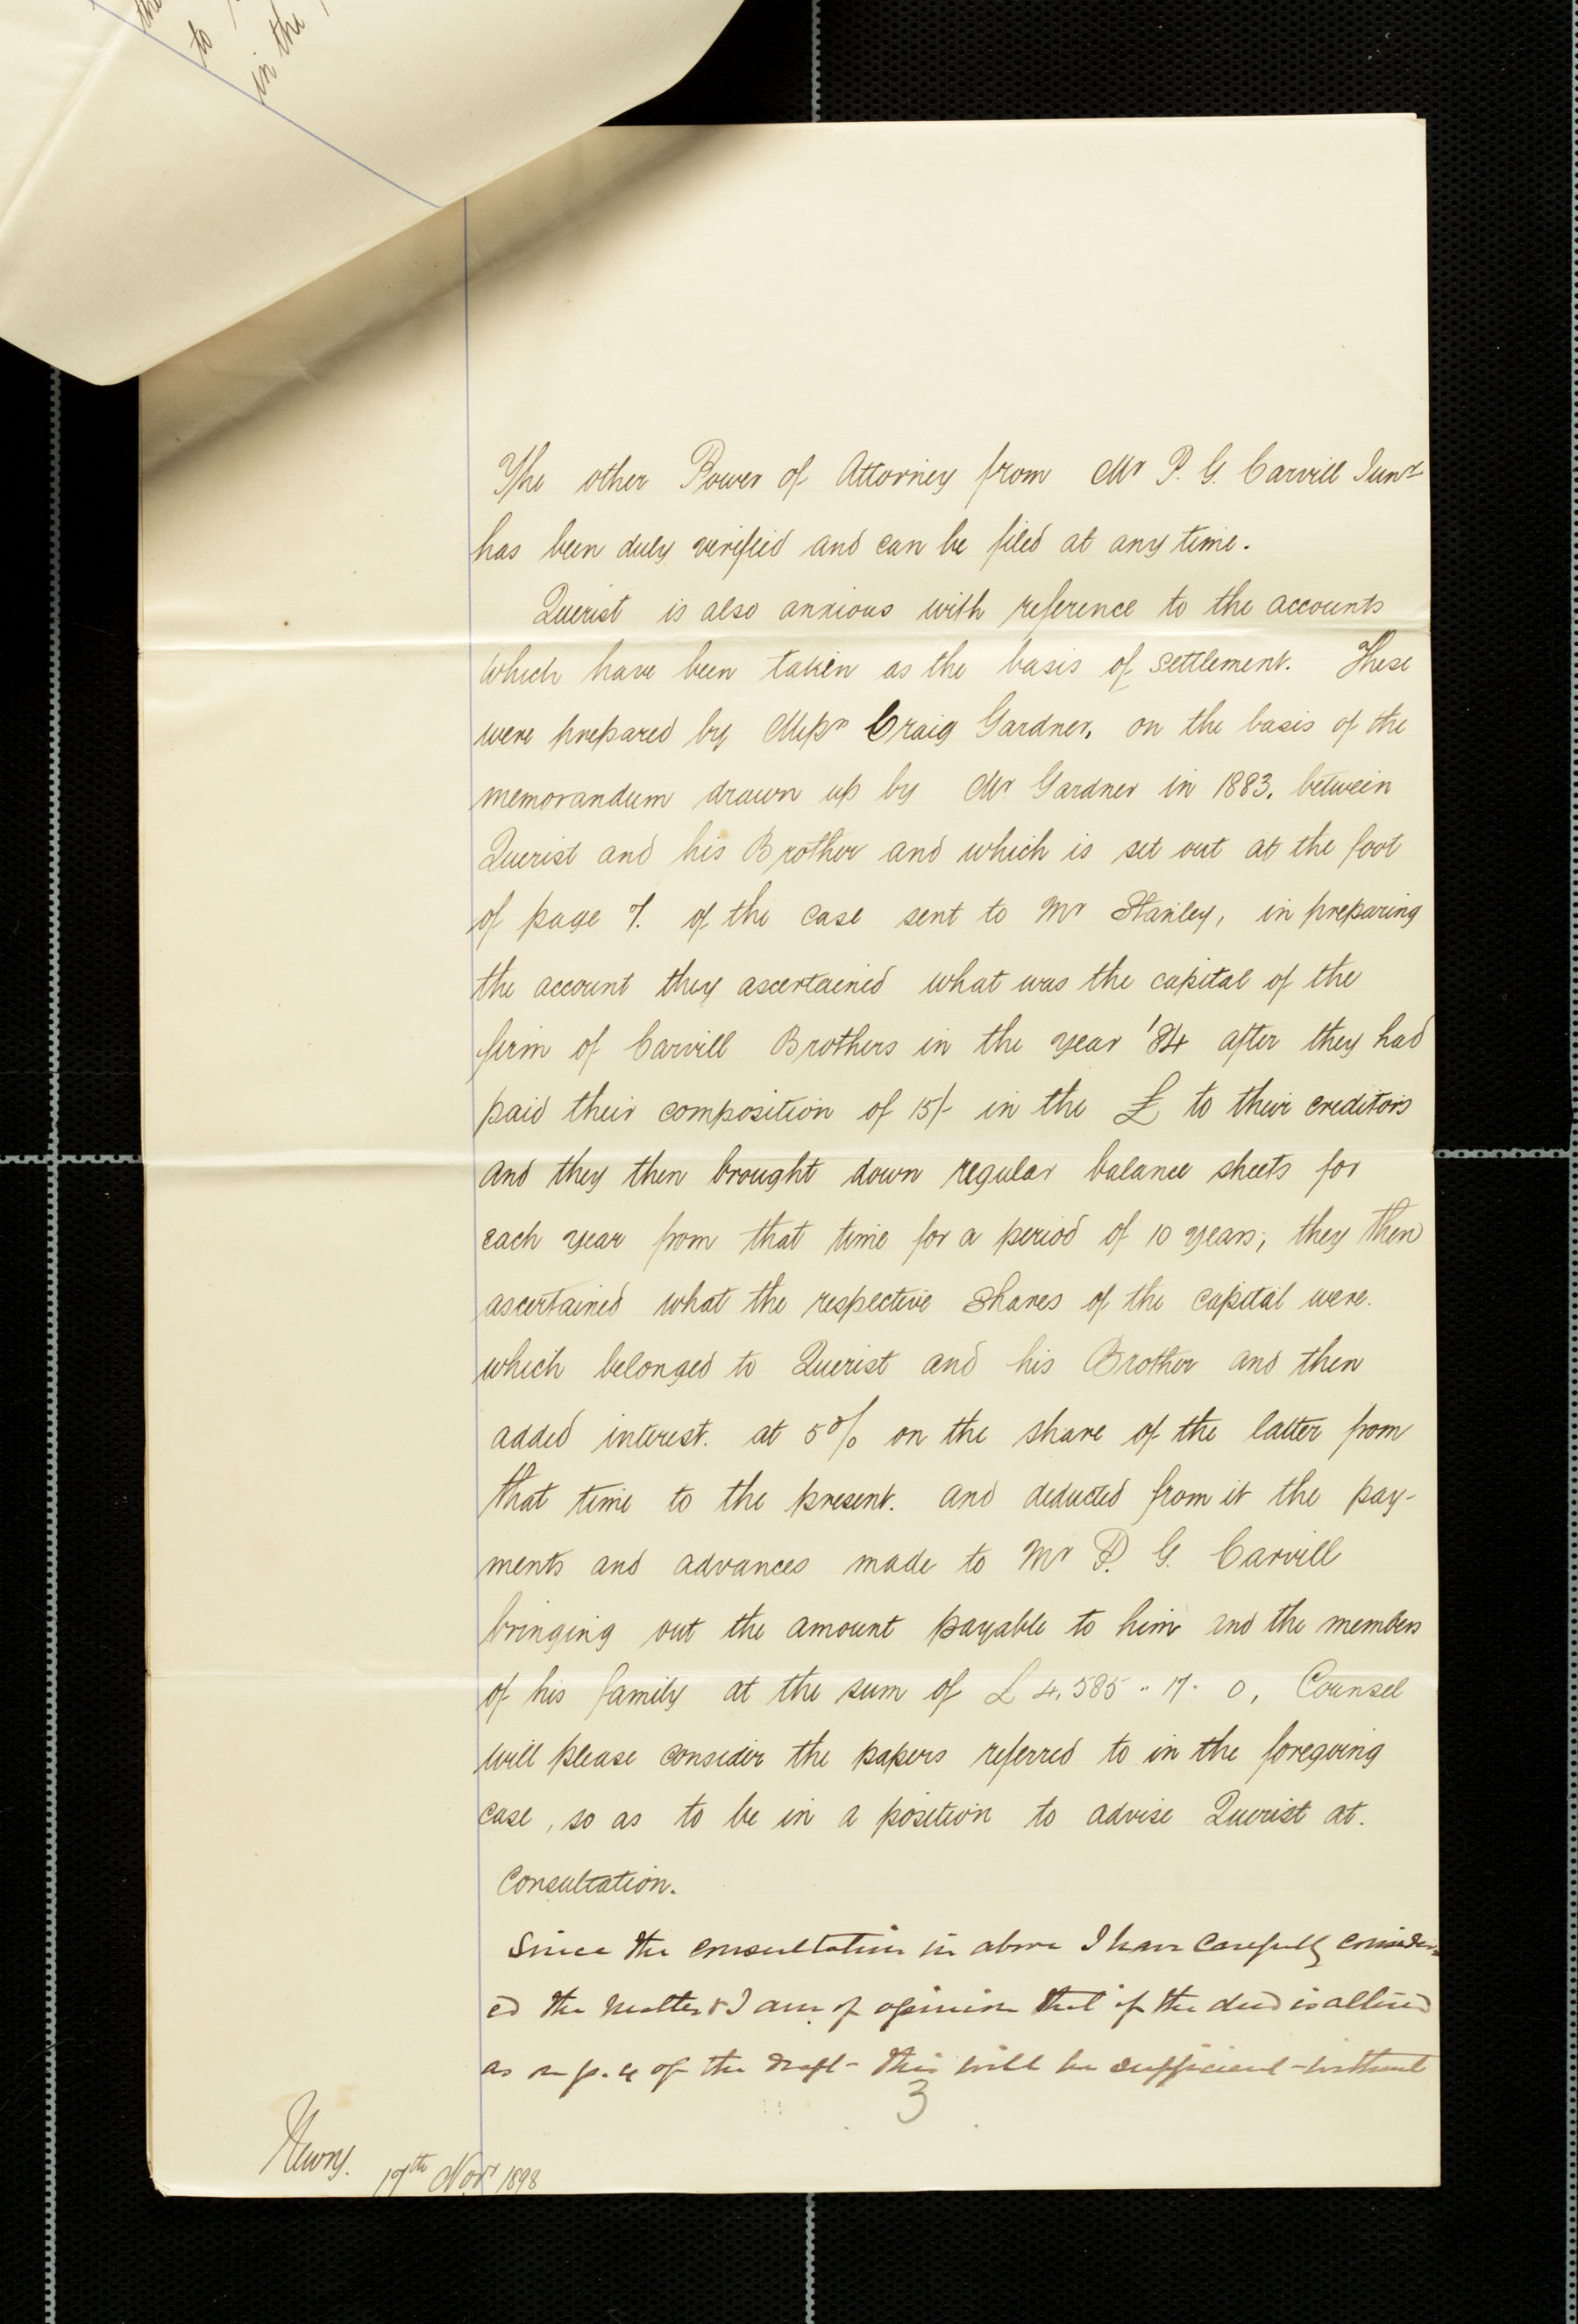 the
to
in the
The other Power of Attorney from Mr P. G. Carvill Junr
has been duly verified and can be filed at any time.
Querist is also anxious with reference to the accounts
which have been taken as the basis of settlement. These
were prepared by Messrs Craig Gardner, on the basis of the
memorandum drawn up by Mr Gardner in 1883. between
Querist and his Brother and which is set out at the foot
of page 7. of the case sent to Mr Stanley, in preparing
the account they ascertained what was the capital of the
firm of Carvill Brothers in the year '84 after they had
paid their composition of 15/- in the £ to their creditors
and they then brought down regular balance sheets for
each year from that time for a period of 10 years; they then
ascertained what the respective shares of the capital were.
which belonged to Querist and his Brother and then
added interest. at 5% on the share of the latter from
that time to the present. and deducted from it the pay-
ments and advances made to Mr P. G. Carvill
bringing out the amount payable to him and the members
of his family at the sum of £4,585 " 17 - 0, Counsel
will please consider the papers referred to in the foregoing
case, so as to be in a position to advise Querist at.
Consultation.
Since the consultation in above I have carefully consider-
ed the matter & I am of opinion that if the deed is altered
as in p. 4 of the draft - this will be sufficient - without
3
Newry. 17th Novr 1898